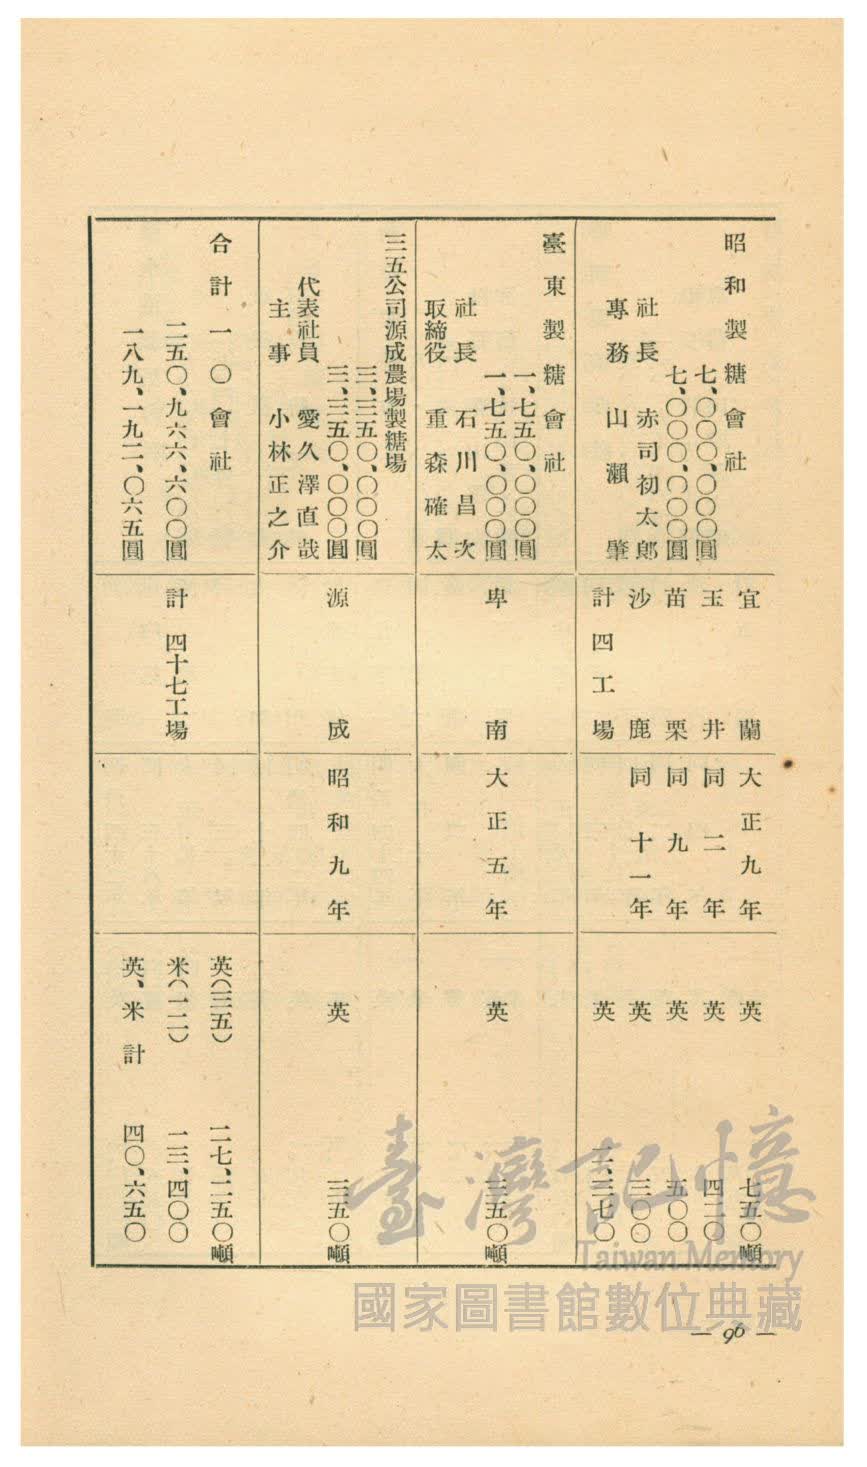 昭和製糖會社
七、〇〇〇、〇〇〇圓
七、〇〇〇、〇〇〇圓
社長 赤司初太郎
專務 山瀨肇
宜蘭 大正九年 英 七五〇噸
玉井 同二年 英 四二〇
苗栗 同九年 英 五〇〇
沙鹿 同十一年 英 三〇〇
計四工場 英
臺東製糖會社
一、七五〇、〇〇〇圓
一、七五〇、〇〇〇圓
社長 石川昌次
取締役 重森確太
卑南 大正五年 英 三五〇噸
三五公司源成農場製糖場
三、三五〇、〇〇〇圓
三、三五〇、〇〇〇圓
代表社員 愛久澤直哉
主事 小林正之介
源成 昭和九年 英 三五〇噸
合計一〇會社
二五〇、九六六、六〇〇圓
一八九、一九二、〇六五圓
計 四十七工場
英(三五) 二七、二五〇噸
米(一二) 一三、四〇〇
英、米計 四〇、六五〇
臺灣記憶
Taiwan Memory
國家圖書館數位典藏
— 96 —